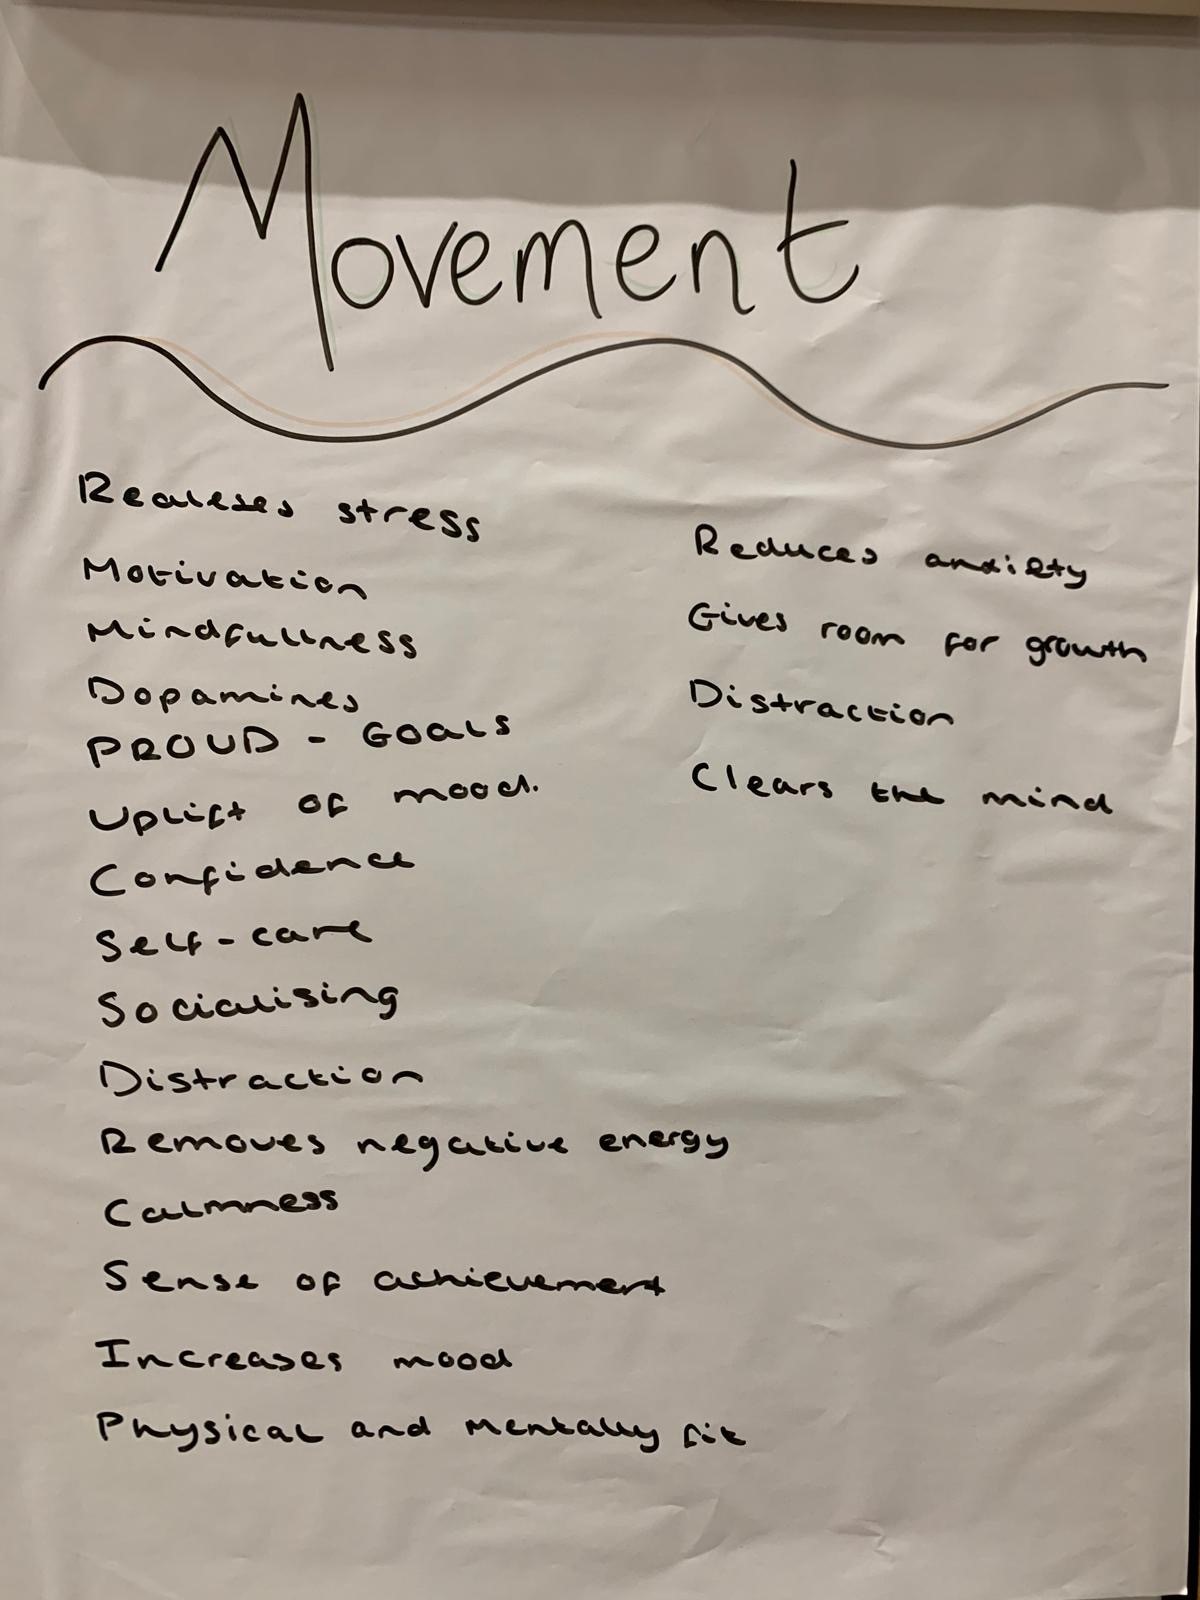 Movement
Realeses stress
Motivation
Mindfullness
Dopamines
PROUD - GOALS
Uplift of mood.
Confidence
Self-care
Socialising
Distraction
Removes negative energy
Calmness
Sense of achievement
Increases mood
Physical and mentally fit
Reduces anxiety
Gives room for growth
Distraction
Clears the mind